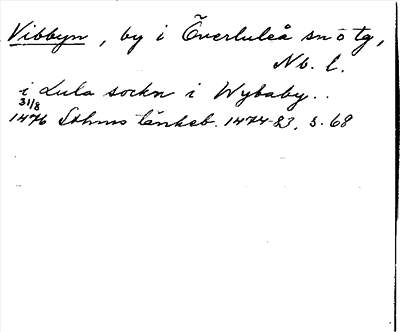 Vibbyn, by i Överluleå sn ö tg,
Nb. l.
i Lula sockn i Wybaby..
31/8
1476 Sthms tänkeb. 1474-83, s. 68